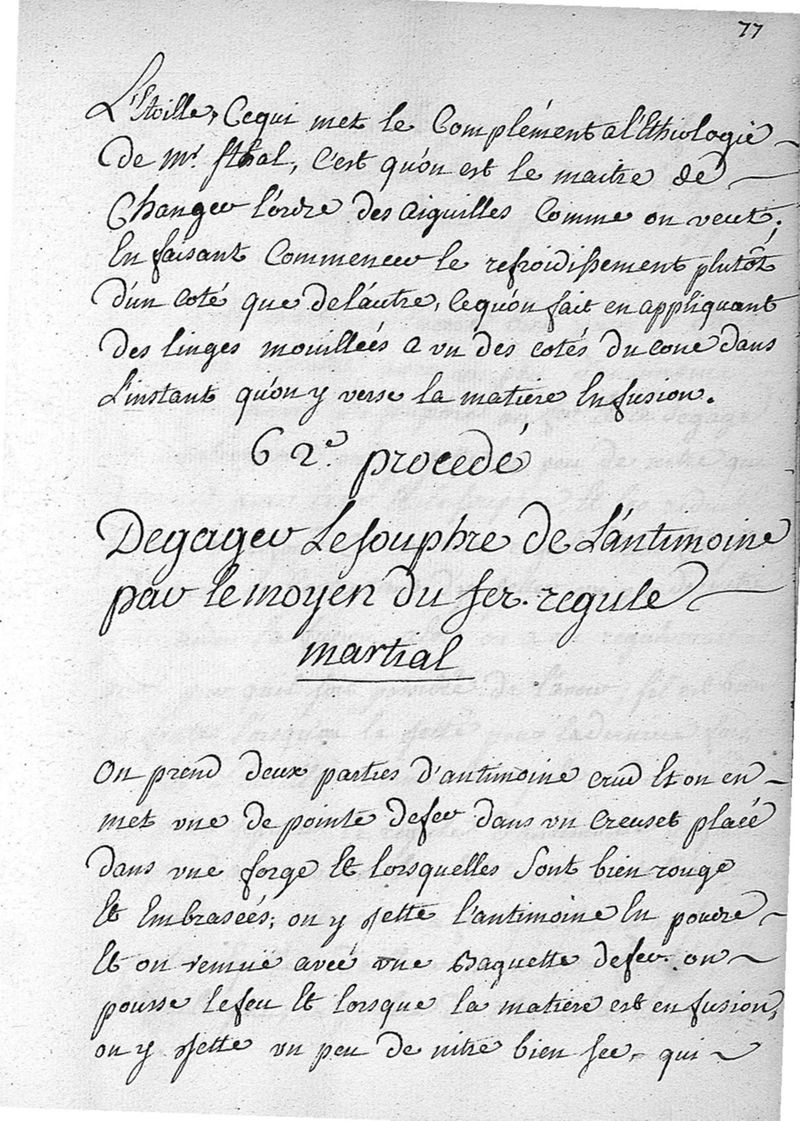 77
L'Etoille, Cequi met le Complément a l'Ethiologie
de mr. Sthal, C'est qu'on est le maitre de
Changer l'ordre des aiguilles Comme on veut;
En faisant Commencer le refroidissement plutôt
d'un coté que de l'autre, Cequ'on fait en appliquant
des linges mouilleés a vn des cotés du cone dans
l'instant qu'on y verse la matiere En fusion.
62e. procedé
Degager Le souphre de L'antimoine
par le moyen du fer. regule
martial
On prend deux parties d'antimoine crud Et on en
met vne de pointe de fer dans vn Creuset placé
dans vne forge Et lorsquelles sont bien rouge
Et Embraseés; on y jette l'antimoine En poudre
Et on remuë avec vne Baguette de fer. on
pousse le feu Et lorsque la matiere est en fusion,
on y jette vn peu de nitre bien sec, qui